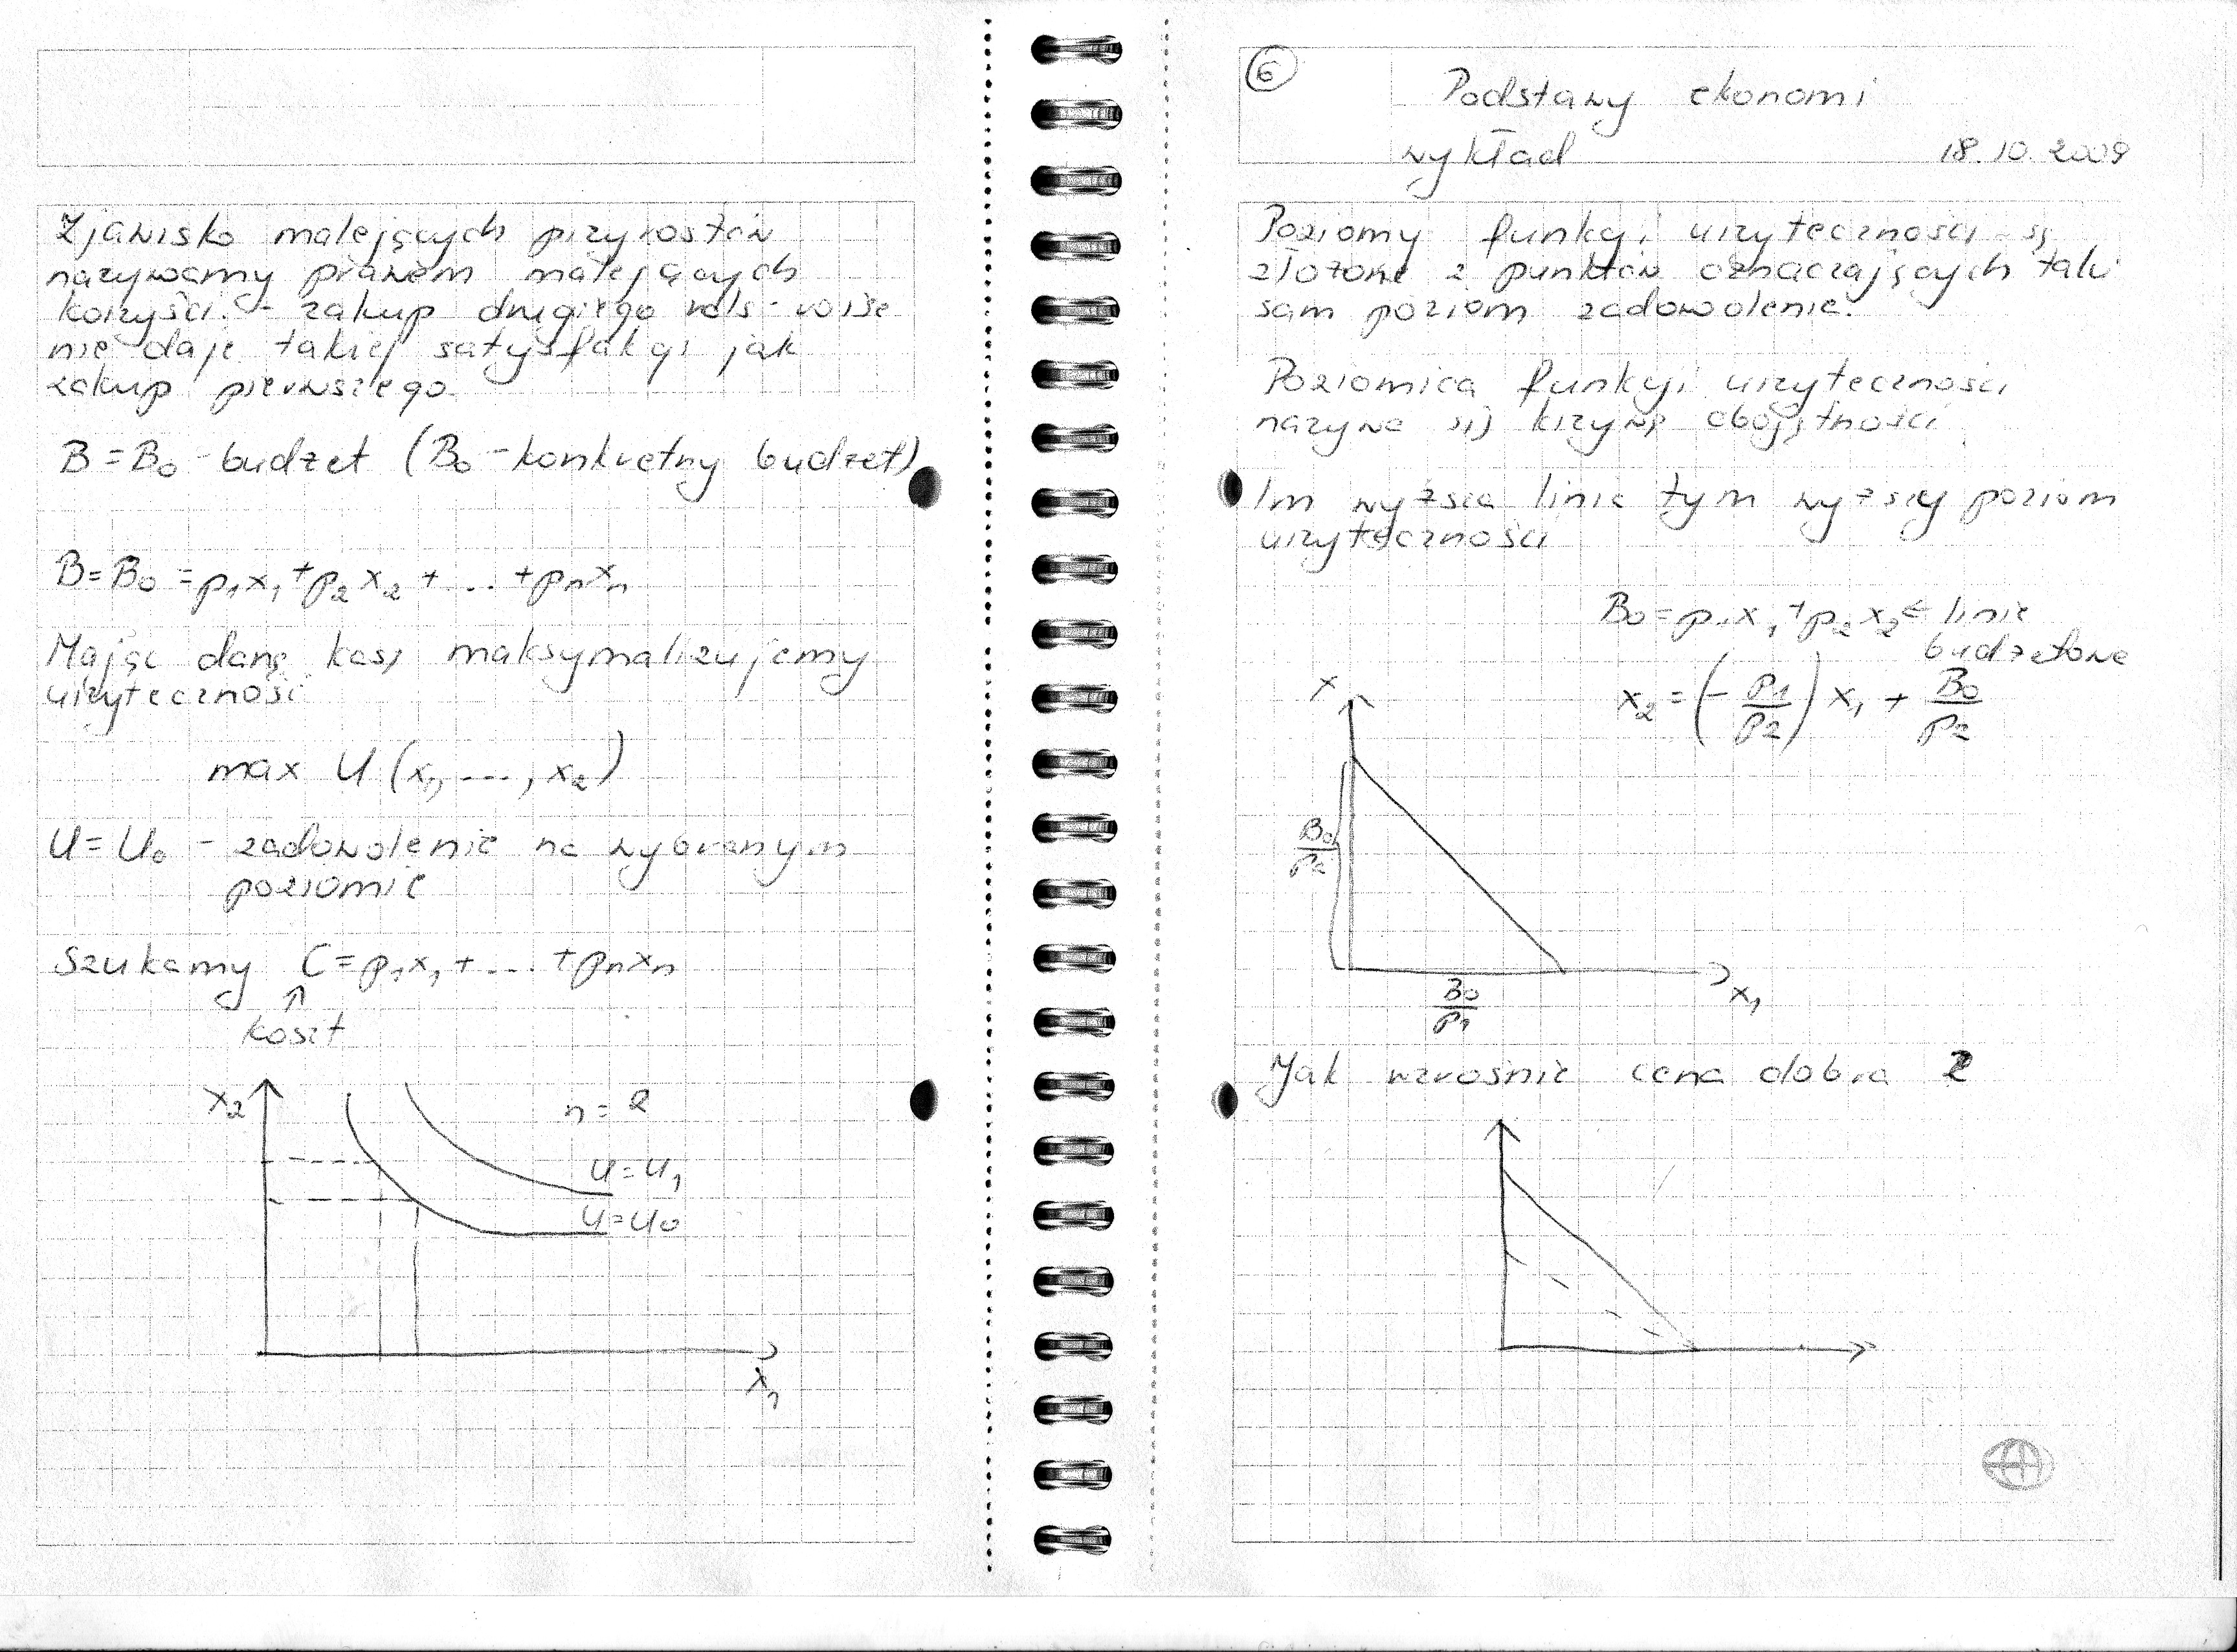 Zjawisko malejących przyrostów
nazywamy prawem malejących
korzyści. - zakup drugiego rols-roise
nie daje takiej satysfakcji jak
zakup pierwszego.
B = B₀ - budżet (B₀ - konkretny budżet)
B = B₀ = p₁x₁ + p₂x₂ + ... + pₙxₙ
Mając daną kasę maksymalizujemy
użyteczność
max U (x₁, ..., x₂)
U = U₀ - zadowolenie na wybranym
poziomie
Szukamy C = p₁x₁ + ... + pₙxₙ
↑
koszt
x₂
n = 2
U = U₁
U = U₀
x₁
6
Podstawy ekonomi
wykład 18.10.2009
Poziomy funkcji użyteczności są
złożone z punktów oznaczających taki
sam poziom zadowolenia.
Poziomicą funkcji użyteczności
nazywa się krzywą obojętności.
Im wyższa linia tym wyższy poziom
użyteczności
B₀ = p₁x₁ + p₂x₂ ← linia
budżetowa
x₂ = (- p₁/p₂) x₁ + B₀/p₂
x
B₀/p₂
x₁
B₀/p₁
Jak wzrośnie cena dobra 2